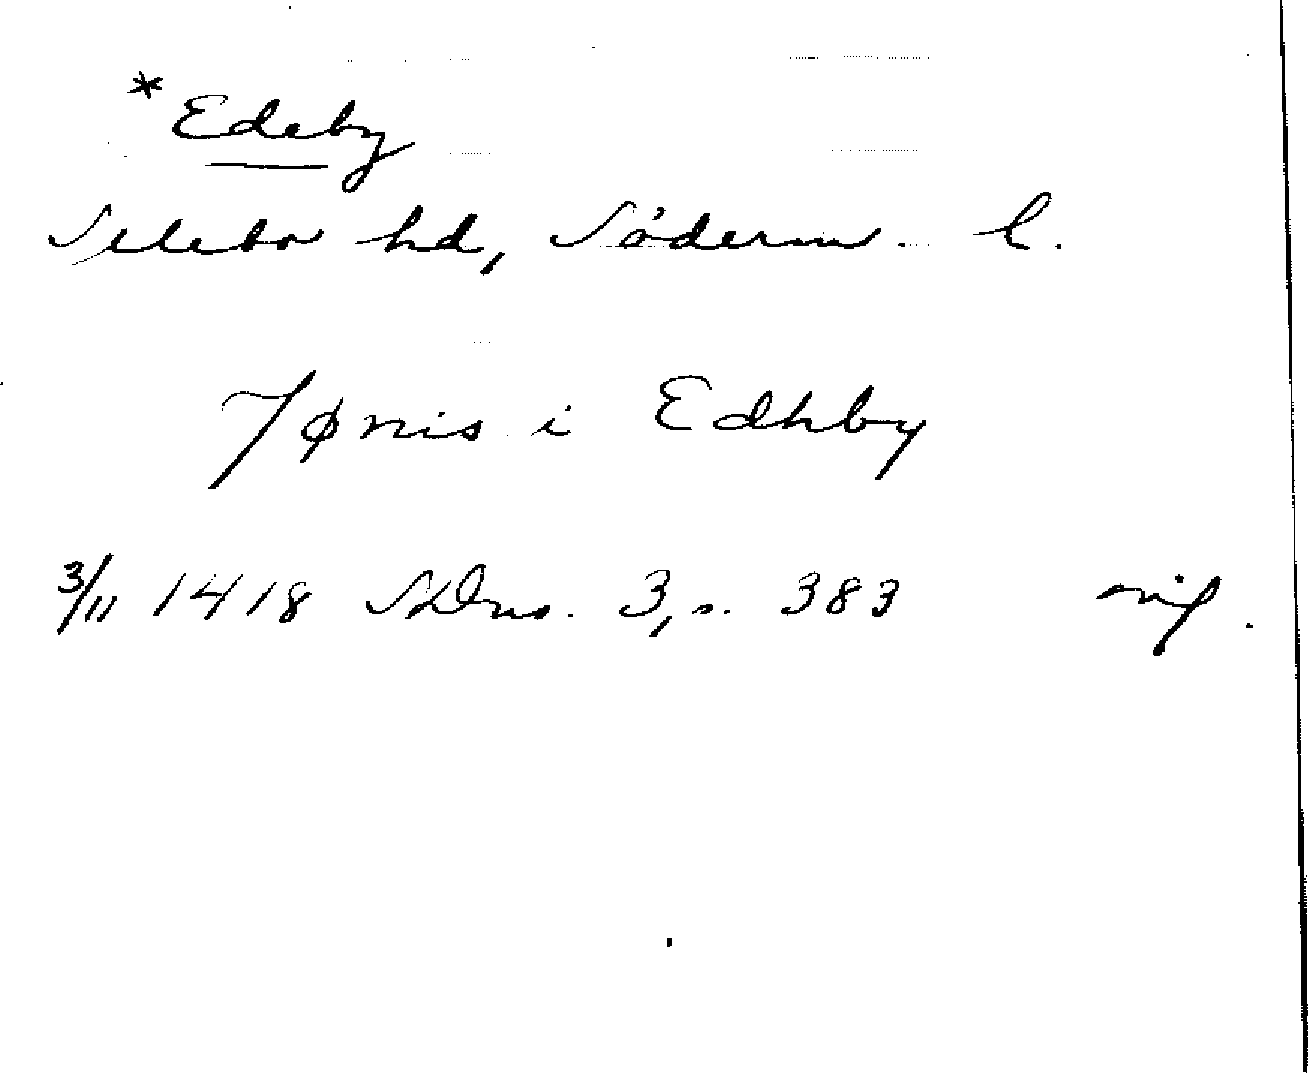 *Edeby
Selebo hd, Söderm. l.
Jønis i Edhby
3/11 1418 SDns. 3, s. 383